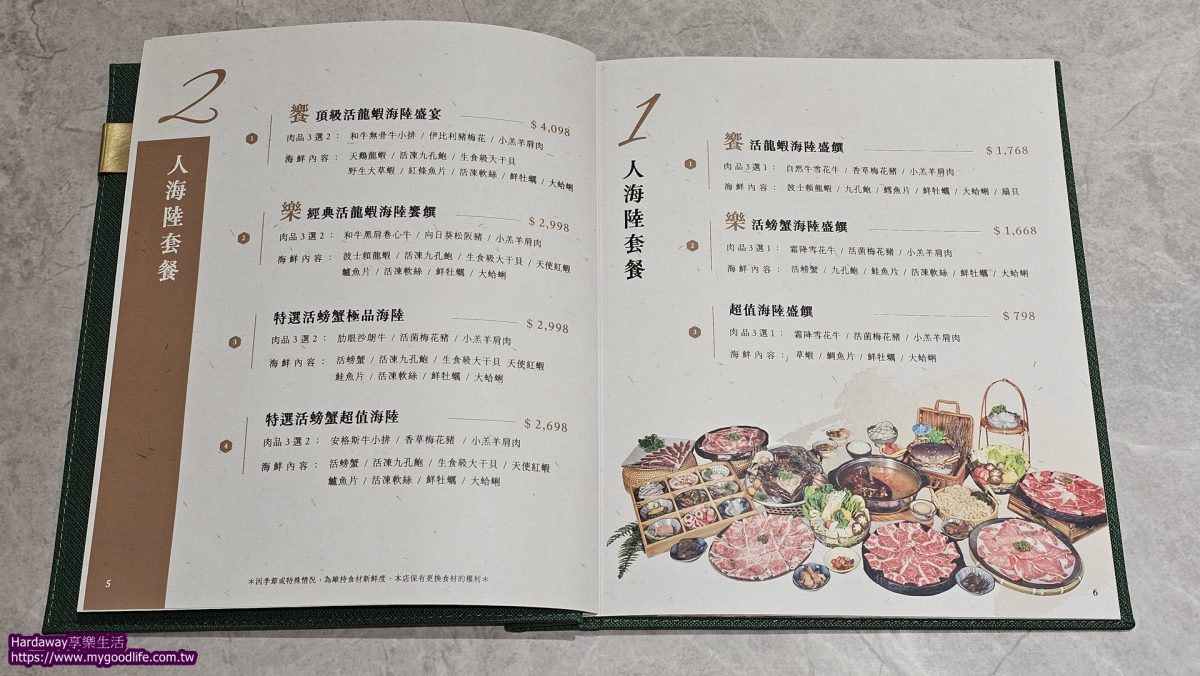 2
人海陸套餐
1
饗 頂級活龍蝦海陸盛宴 $ 4,098
肉品3選2： 和牛無骨牛小排 / 伊比利豬梅花 / 小羔羊肩肉
海鮮內容： 天鵝龍蝦 / 活凍九孔鮑 / 生食級大干貝
野生大草蝦 / 紅條魚片 / 活凍軟絲 / 鮮牡蠣 / 大蛤蜊
2
樂 經典活龍蝦海陸饗饌 $ 2,998
肉品3選2： 和牛黑肩卷心牛 / 向日葵松阪豬 / 小羔羊肩肉
海鮮內容： 波士頓龍蝦 / 活凍九孔鮑 / 生食級大干貝 / 天使紅蝦
鱸魚片 / 活凍軟絲 / 鮮牡蠣 / 大蛤蜊
3
特選活螃蟹極品海陸 $ 2,998
肉品3選2： 肋眼沙朗牛 / 活菌梅花豬 / 小羔羊肩肉
海鮮內容： 活螃蟹 / 活凍九孔鮑 / 生食級大干貝 天使紅蝦
鮭魚片 / 活凍軟絲 / 鮮牡蠣 / 大蛤蜊
4
特選活螃蟹超值海陸 $ 2,698
肉品3選2： 安格斯牛小排 / 香草梅花豬 / 小羔羊肩肉
海鮮內容： 活螃蟹 / 活凍九孔鮑 / 生食級大干貝 / 天使紅蝦
鱸魚片 / 活凍軟絲 / 鮮牡蠣 / 大蛤蜊
＊因季節或特殊情況，為維持食材新鮮度，本店保有更換食材的權利＊
5
1
人海陸套餐
1
饗 活龍蝦海陸盛饌 $ 1,768
肉品3選1： 自然牛雪花牛 / 香草梅花豬 / 小羔羊肩肉
海鮮內容： 波士頓龍蝦 / 九孔鮑 / 鱈魚片 / 鮮牡蠣 / 大蛤蜊 / 扇貝
2
樂 活螃蟹海陸盛饌 $ 1,668
肉品3選1： 霜降雪花牛 / 活菌梅花豬 / 小羔羊肩肉
海鮮內容： 活螃蟹 / 九孔鮑 / 鮭魚片 / 活凍軟絲 / 鮮牡蠣 / 大蛤蜊
3
超值海陸盛饌 $ 798
肉品3選1： 霜降雪花牛 / 活菌梅花豬 / 小羔羊肩肉
海鮮內容： 草蝦 / 鯛魚片 / 鮮牡蠣 / 大蛤蜊
6
Hardaway享樂生活
https://www.mygoodlife.com.tw